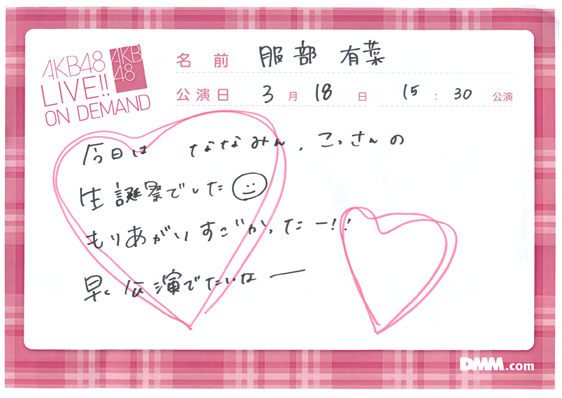 AKB48
LIVE!!
ON DEMAND
AKB
48
名前 服部 有菜
公演日 3月18日 15:30 公演
今日は ななみん、こっさんの
生誕祭でした
もりあがりすごかったー!!
早く公演でたいなー
DMM.com